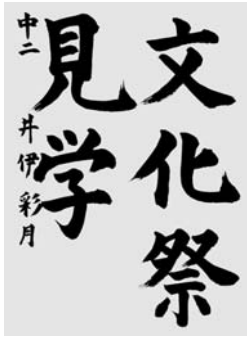 文化祭
見学
中二 井伊彩月